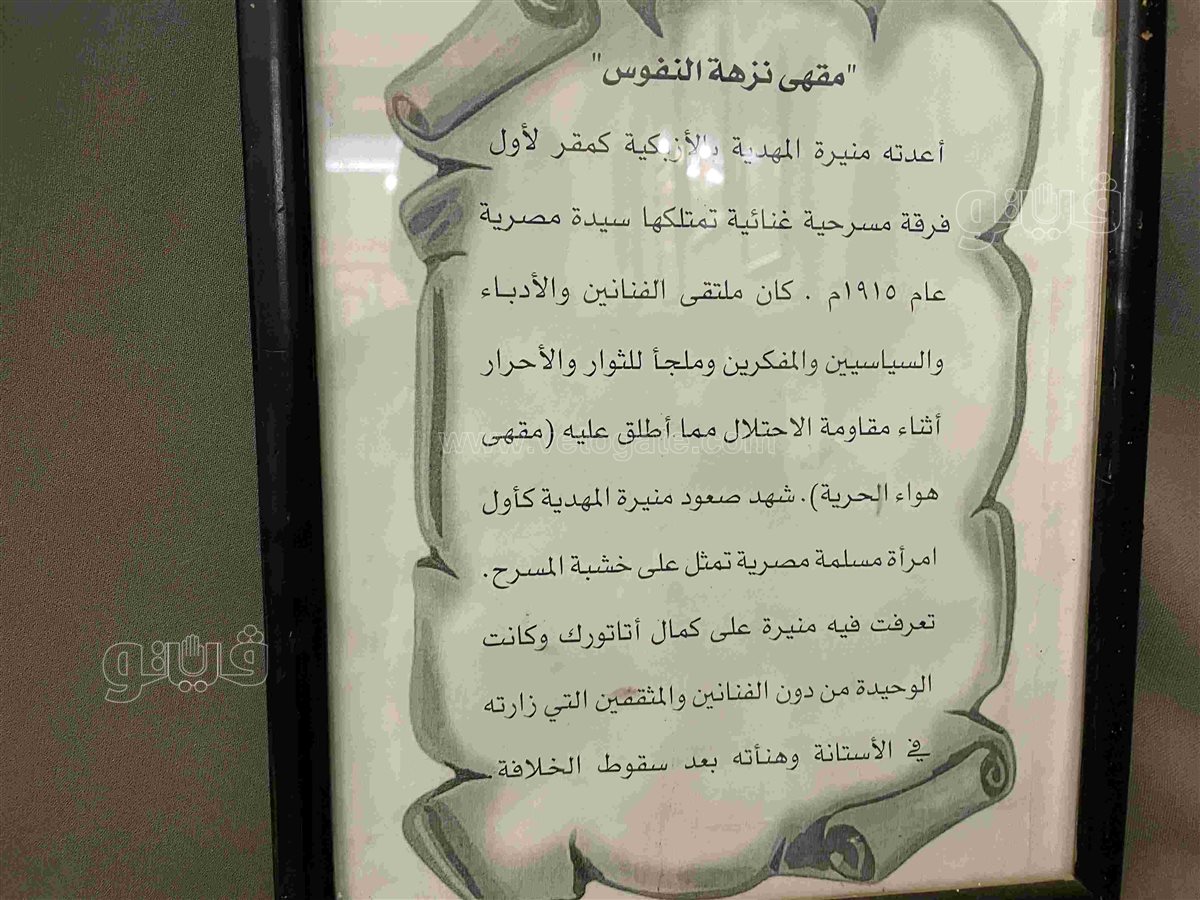 "مقهى نزهة النفوس"
أعدته منيرة المهدية بالأزبكية كمقر لأول
فرقة مسرحية غنائية تمتلكها سيدة مصرية
عام ١٩١٥م . كان ملتقى الفنانين والأدباء
والسياسيين والمفكرين وملجأ للثوار والأحرار
أثناء مقاومة الاحتلال مما أطلق عليه (مقهى
هواء الحرية). شهد صعود منيرة المهدية كأول
امرأة مسلمة مصرية تمثل على خشبة المسرح.
تعرفت فيه منيرة على كمال أتاتورك وكانت
الوحيدة من دون الفنانين والمثقفين التي زارته
في الأستانة وهنأته بعد سقوط الخلافة.
فيتو
www.vetogate.com
فيتو